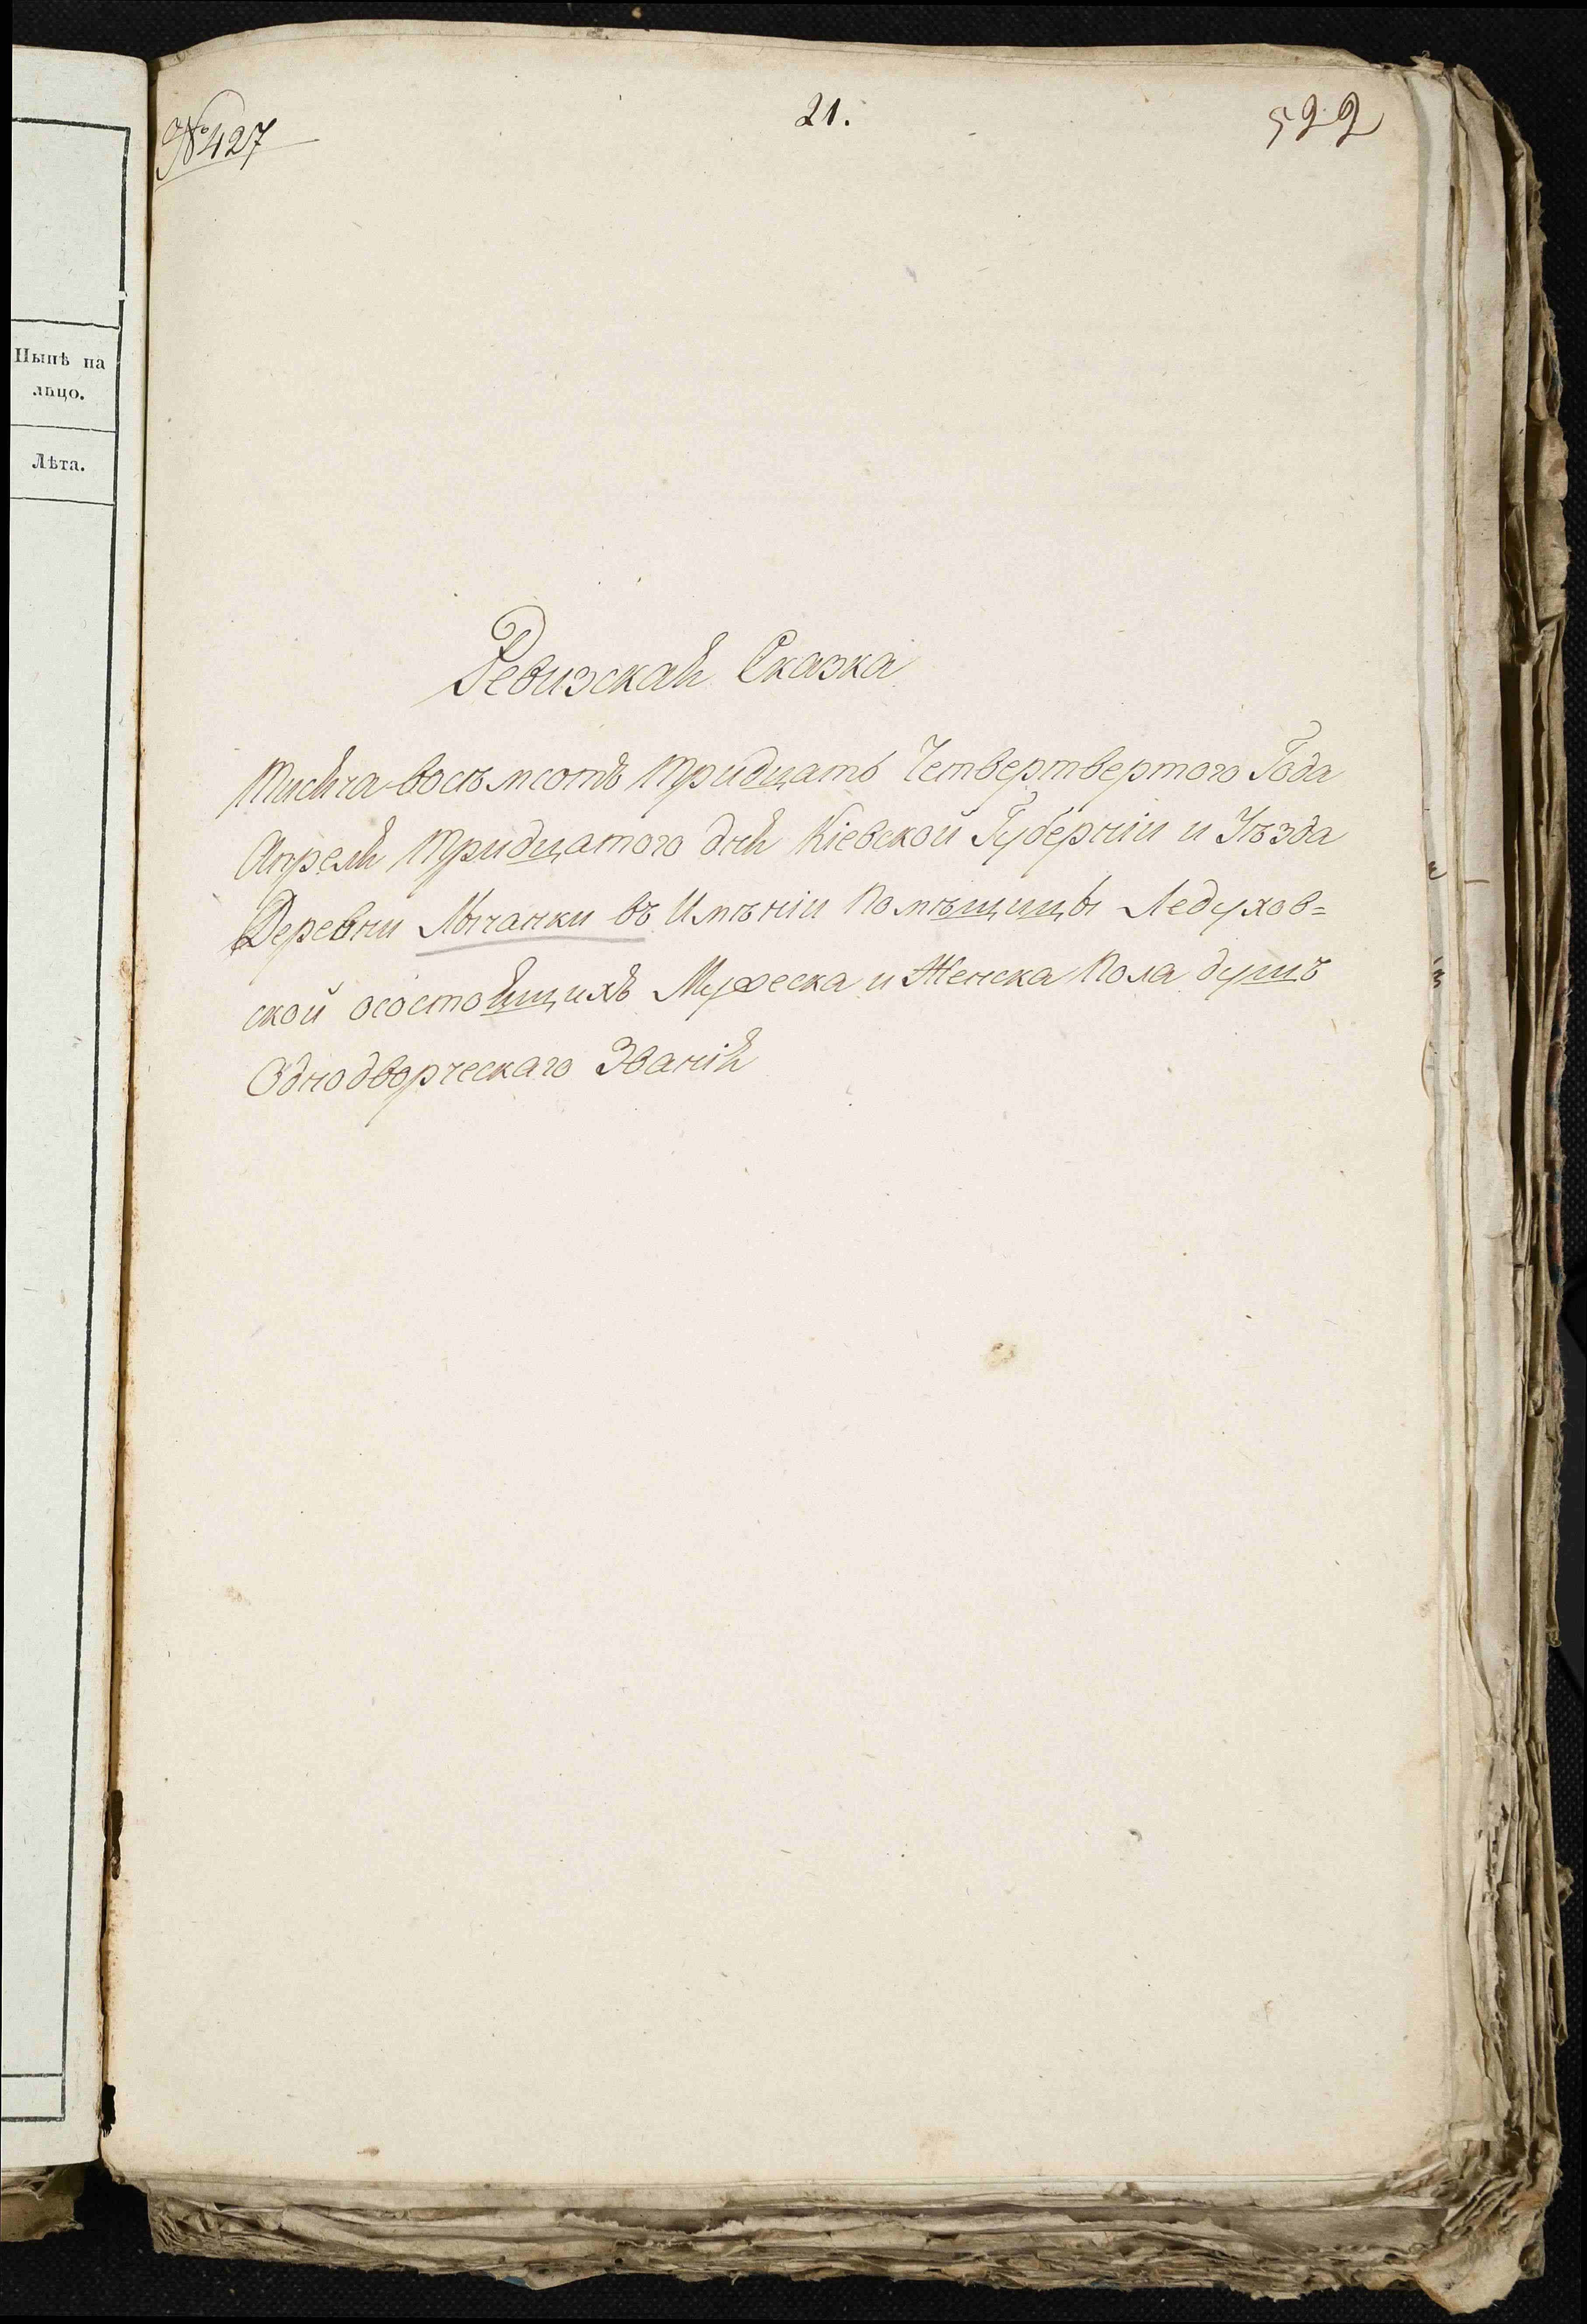 Нынѣ на
лицо.
Лѣта.
№ 427
21.
522
Ревизская Сказка
Тисяча восѣмсотъ тридцать Четвертвертого Года
Апреля тридцатого дня Кіевской Губерніи и Уѣзда
Деревни Лычанки въ Имѣніи Помѣщицы Ледухов=
ской осостоящихъ Мужеска и Женска Пола душъ
Однодворческаго Званія